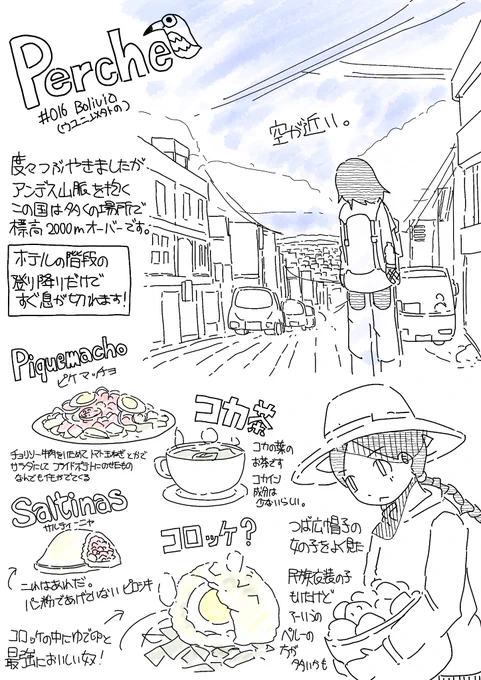 Perche
#016 Bolivia
(ウユニ以外の)
空が近い。
度々つぶやきましたが
アンデス山脈を抱く
この国は多くの場所で
標高2000mオーバーです。
ホテルの階段の
登り降りだけで
すぐ息が切れます!
Piquemacho
ピケマッチョ
チョリソー牛肉をいためて、トマト玉ねぎとかで
サラダにして フライドポテトにのせたもの
なんでもでかでてくる
コカ茶
コカの葉の
お茶です
コカイン
成分は
少ないらしい。
Saltinas
サルティーニャ
これはあれだ。
パン粉であげていない ピロシキ
コロッケ?
コロッケの中にゆで卵と
最強においしい奴!
つば広帽子の
女の子をよく見た
民族衣装の子
もいたけど
こういうの
ペルーの
方が
多いかも